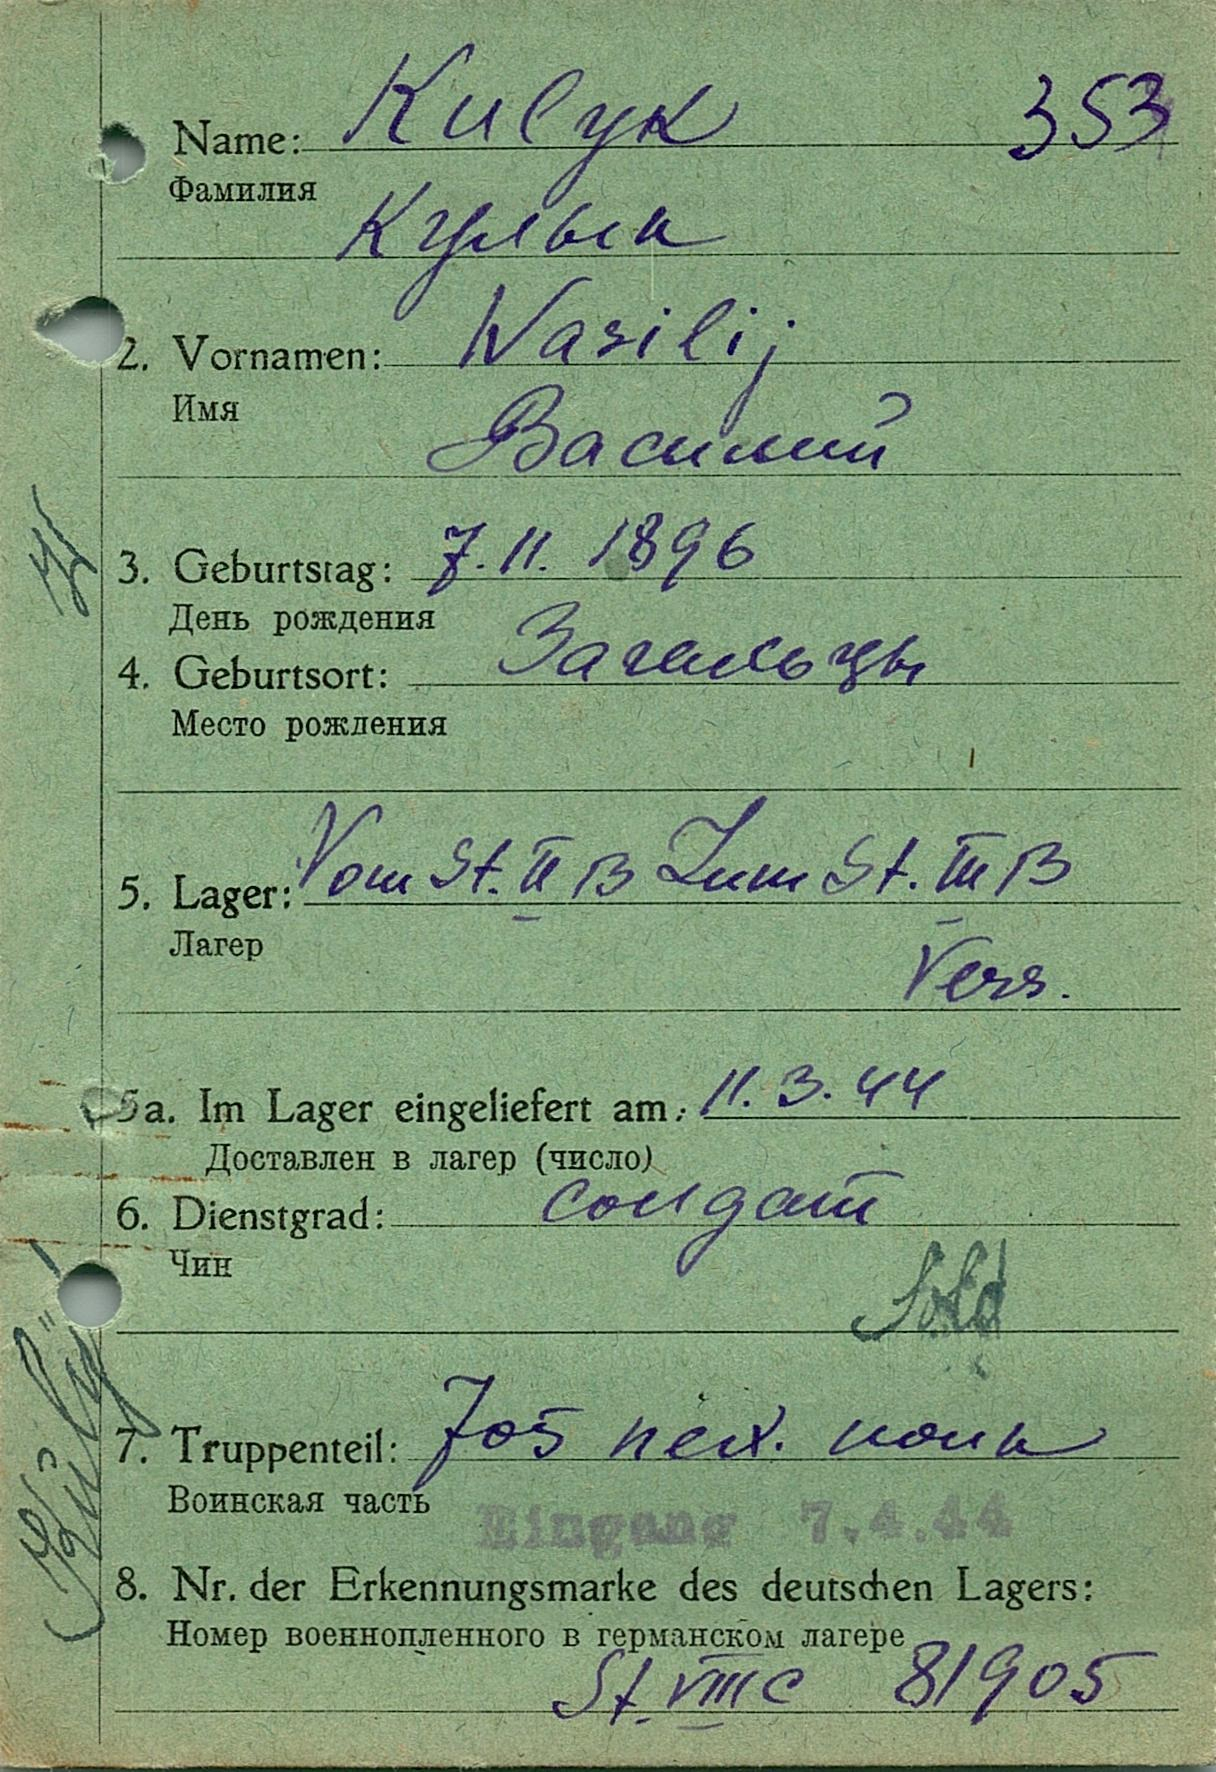 Name: Кисук 353
Фамилия
Кулык
2. Vornamen: Wasilij
Имя
Василий
3. Geburtstag: 7.11.1896
День рождения
4. Geburtsort: Загальцы
Место рождения
5. Lager: Vom St. II B Zum St. III B
Лагер
Vers.
5a. Im Lager eingeliefert am: 11.3.44
Доставлен в лагер (число)
6. Dienstgrad: солдат
Чин
Sold
7. Truppenteil: 705 пех. полк
Воинская часть
Eingang 7.4.44
8. Nr. der Erkennungsmarke des deutschen Lagers:
Номер военнопленного в германском лагере
St. VIII C 81905